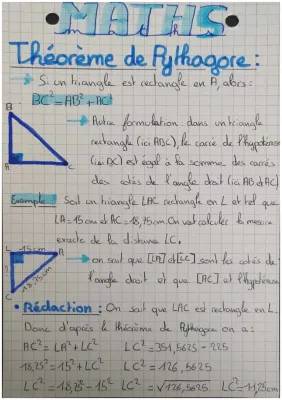 MATHS
Théorème de Pythagore :
→ Si un triangle est rectangle en A, alors :
BC² = AB² + AC²
→ Autre formulation : dans un triangle
rectangle (ici ABC), le carré de l'hypoténuse
(ici BC) est égal à la somme des carrés
des cotés de l'angle droit (ici AB et AC)
B
A
C
Exemple Soit un triangle LAC rectangle en L et tel que
LA = 15 cm et AC = 18,75 cm. On veut calculer la mesure
exacte de la distance LC.
L 15cm A
?
18,75cm
C
→ on sait que [LA] et [LC] sont les cotés de
l'angle droit et que [AC] et l'hypoténuse
• Rédaction : On sait que LAC est rectangle en L.
Donc d'après le théorème de Pythagore on a :
AC² = LA² + LC² LC² = 351,5625 - 225
18,75² = 15² + LC² LC² = 126,5625
LC² = 18,75² - 15² LC = √126,5625 LC = 11,25cm